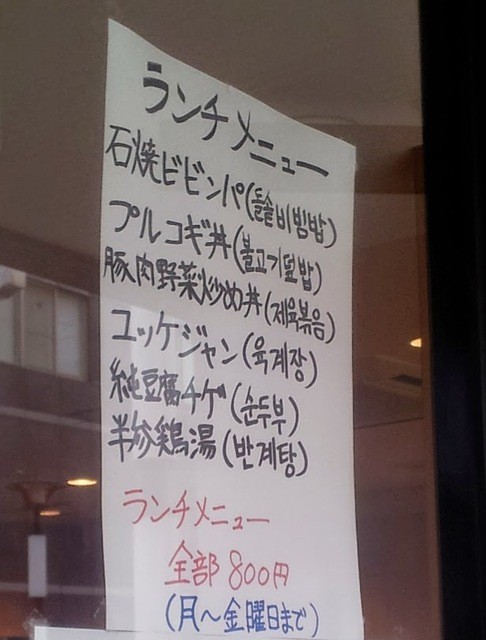 ランチメニュー
石焼ビビンパ(돌솥비빔밥)
プルコギ丼(불고기덮밥)
豚肉野菜炒め丼(제육볶음)
ユッケジャン(육계장)
純豆腐チゲ(순두부)
半参鶏湯(반계탕)
ランチメニュー
全部800円
(月～金曜日まで)